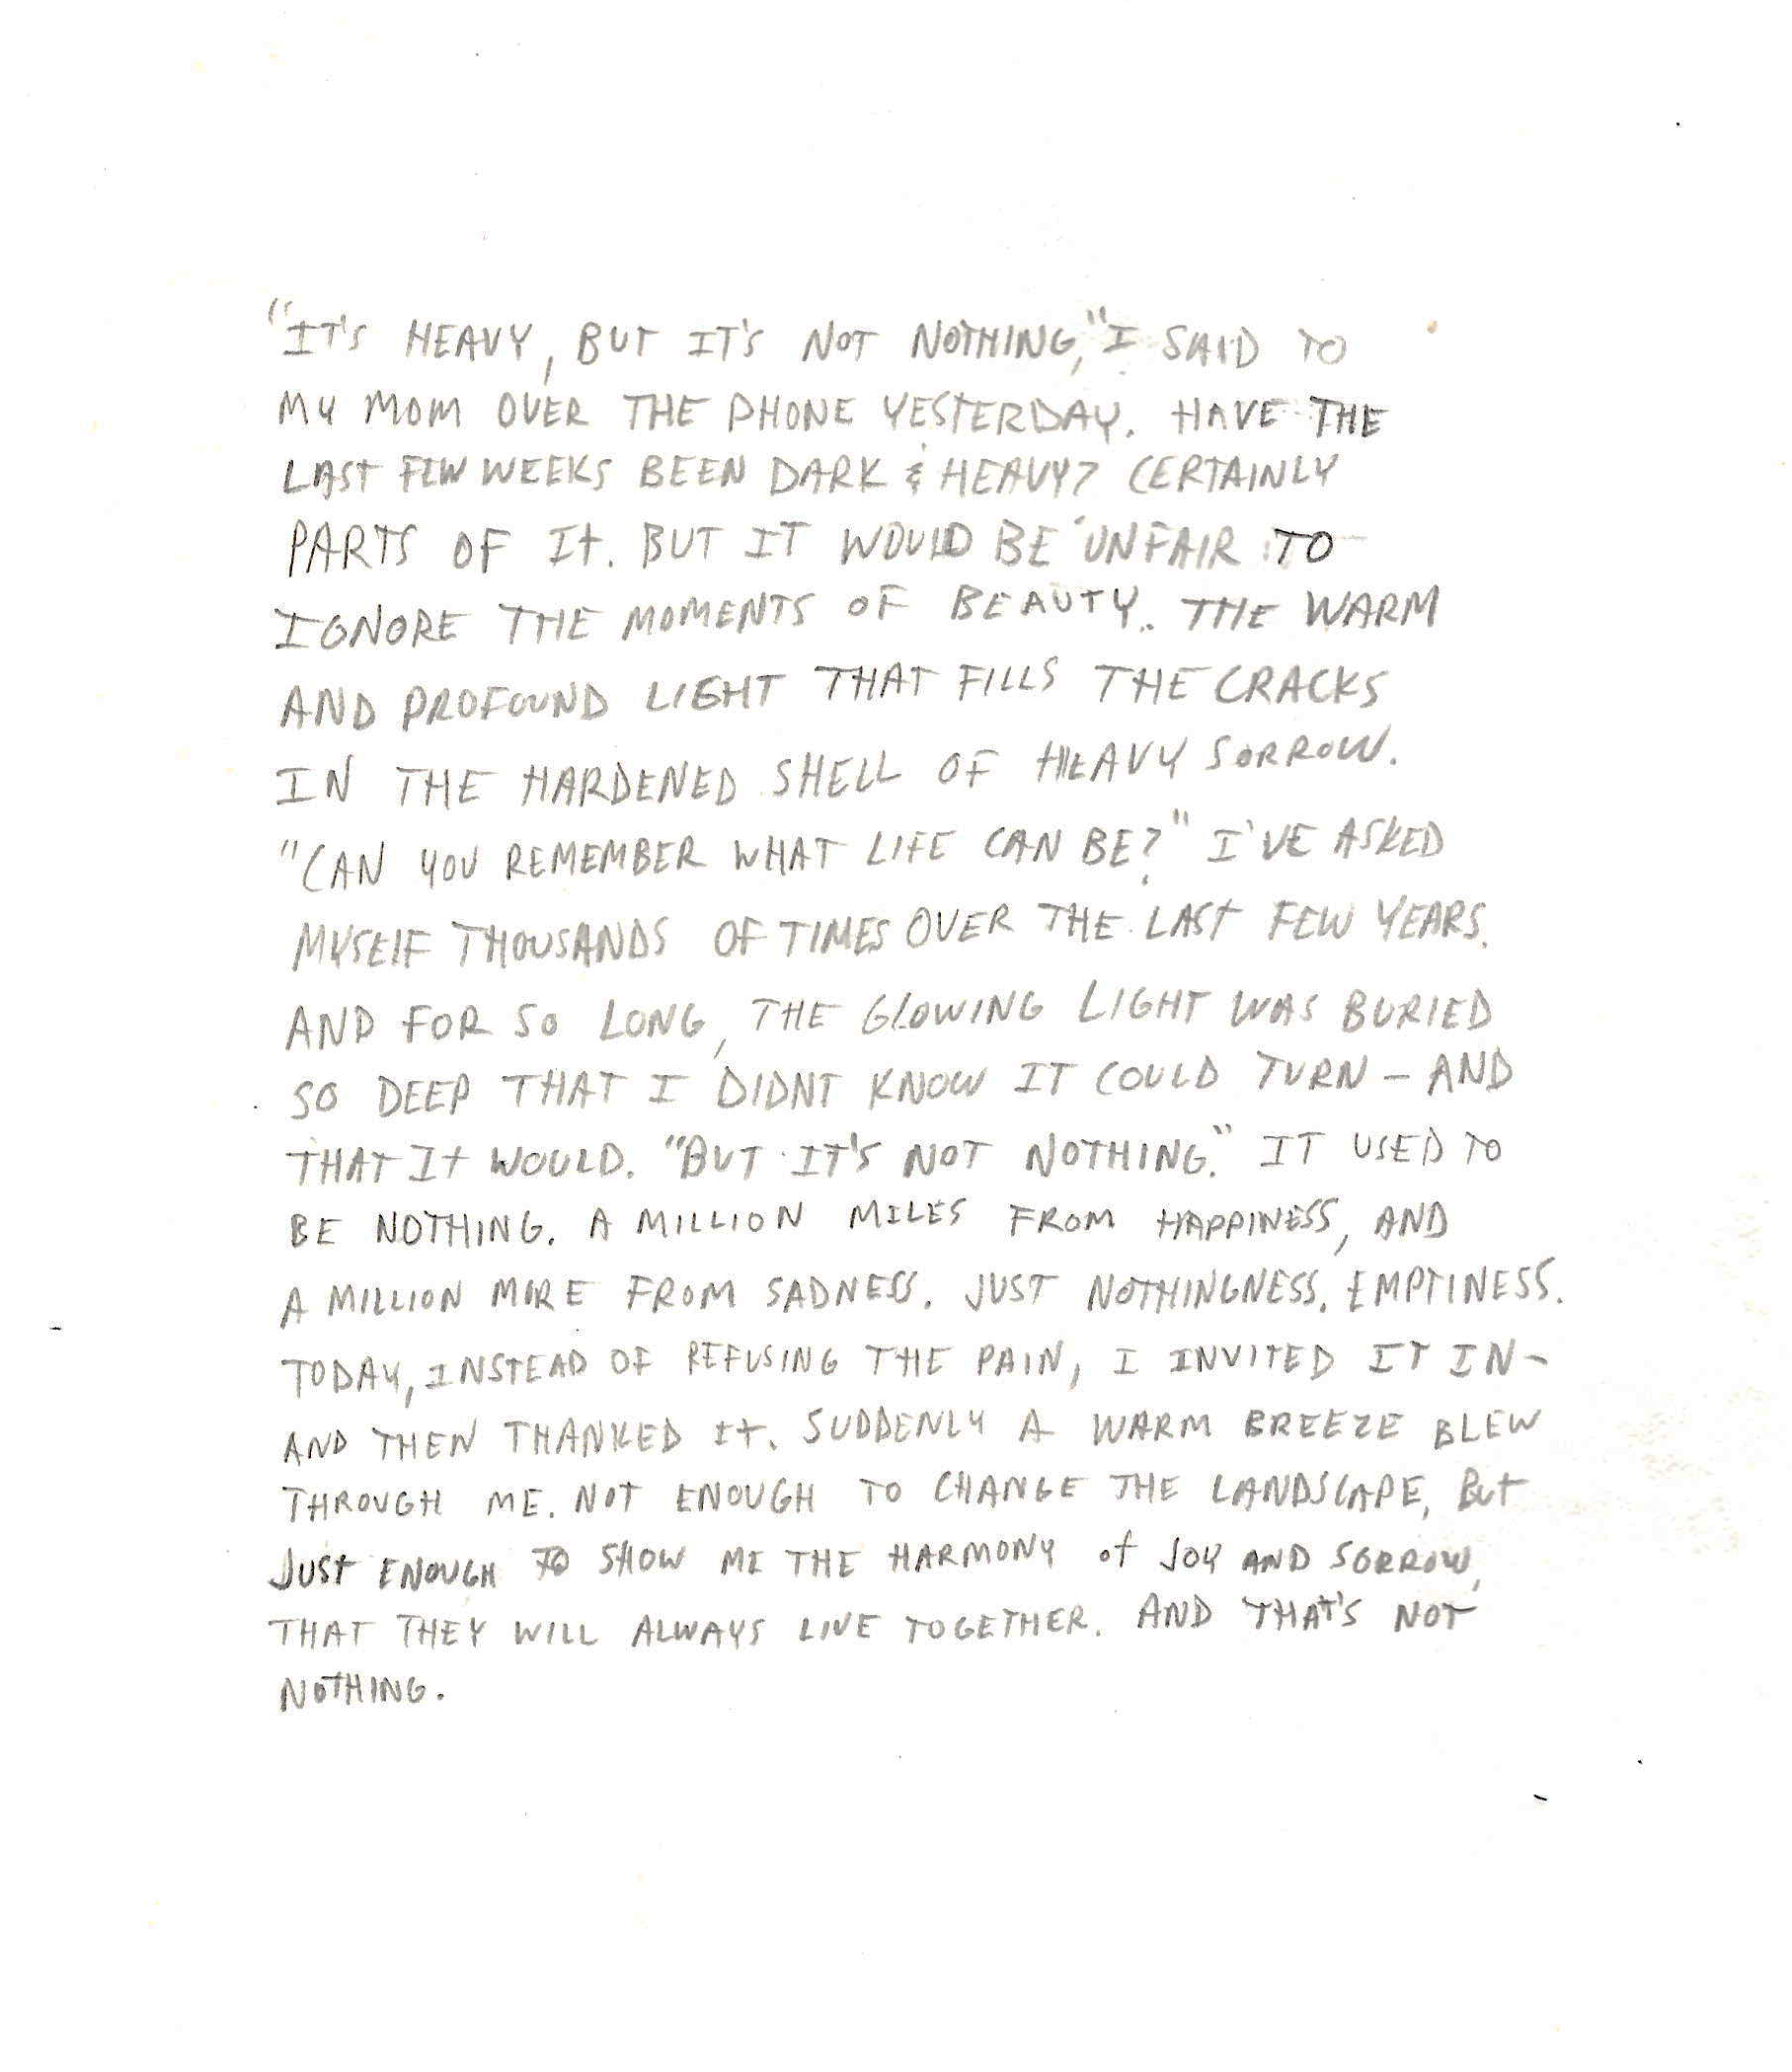 "IT'S HEAVY, BUT IT'S NOT NOTHING," I SAID TO
MY MOM OVER THE PHONE YESTERDAY. HAVE THE
LAST FEW WEEKS BEEN DARK & HEAVY? CERTAINLY
PARTS OF IT. BUT IT WOULD BE UNFAIR TO
IGNORE THE MOMENTS OF BEAUTY. THE WARM
AND PROFOUND LIGHT THAT FILLS THE CRACKS
IN THE HARDENED SHELL OF HEAVY SORROW.
"CAN YOU REMEMBER WHAT LIFE CAN BE?" I'VE ASKED
MYSELF THOUSANDS OF TIMES OVER THE LAST FEW YEARS.
AND FOR SO LONG, THE GLOWING LIGHT WAS BURIED
SO DEEP THAT I DIDNT KNOW IT COULD TURN — AND
THAT IT WOULD. "BUT IT'S NOT NOTHING." IT USED TO
BE NOTHING. A MILLION MILES FROM HAPPINESS, AND
A MILLION MORE FROM SADNESS. JUST NOTHINGNESS. EMPTINESS.
TODAY, INSTEAD OF REFUSING THE PAIN, I INVITED IT IN—
AND THEN THANKED IT. SUDDENLY A WARM BREEZE BLEW
THROUGH ME. NOT ENOUGH TO CHANGE THE LANDSCAPE, BUT
JUST ENOUGH TO SHOW ME THE HARMONY of JOY AND SORROW,
THAT THEY WILL ALWAYS LIVE TOGETHER. AND THAT'S NOT
NOTHING.